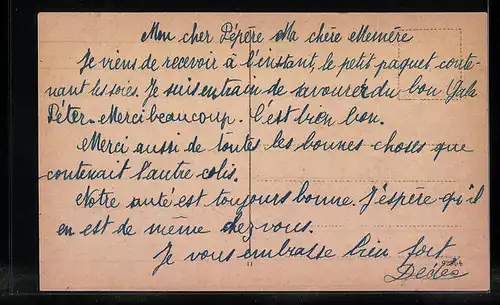 Mon cher Pépère Ma chère Mémère
Je viens de recevoir à l'instant, le petit paquet conte-
nant les soies. Je suis en train de savourer du bon Gala
Péter. Merci beaucoup. C'est bien bon.
Merci aussi de toutes les bonnes choses que
contenait l'autre colis.
Notre santé est toujours bonne. J'espère qu'il
en est de même chez vous.
Je vous embrasse bien fort
Dédée
11